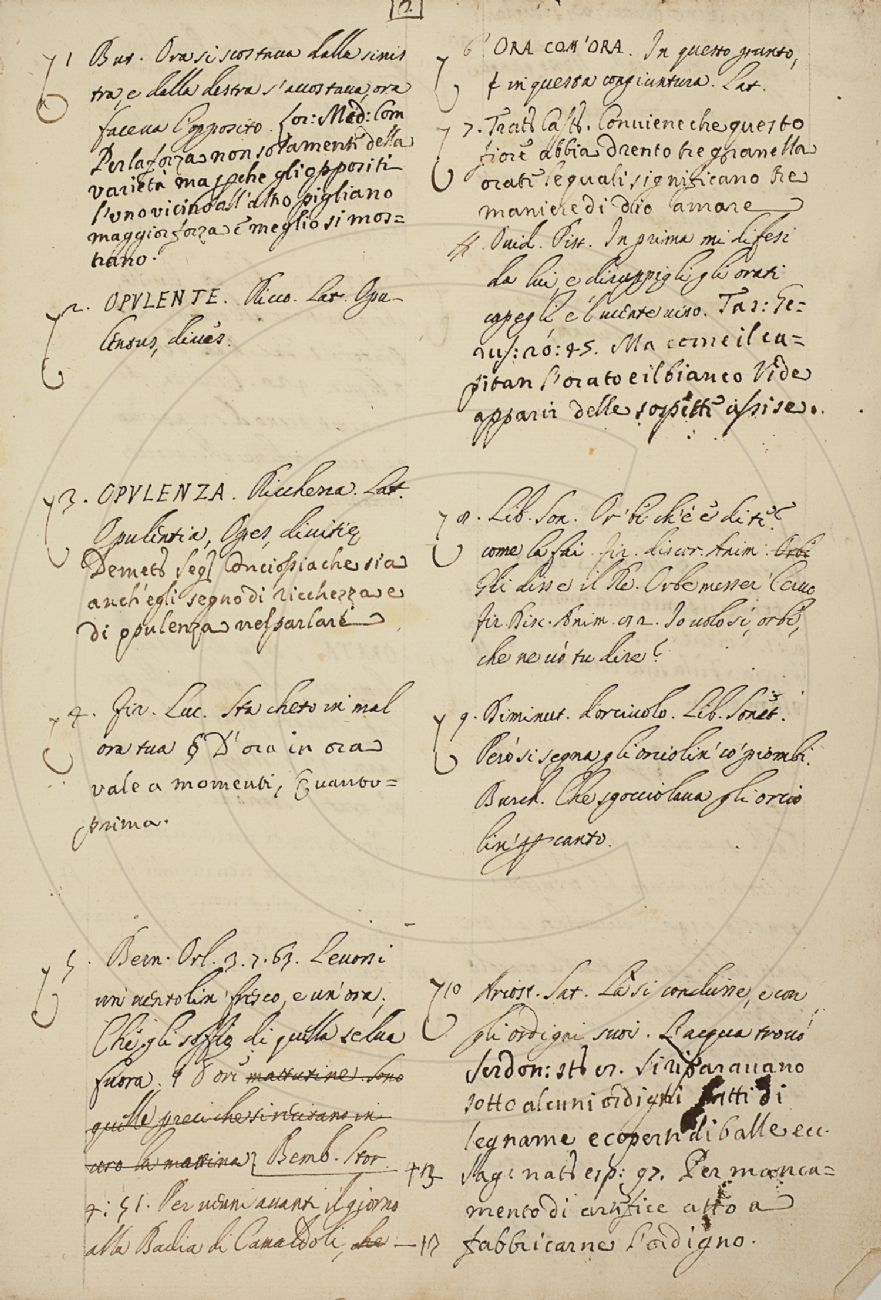 2.
1 But. Ora si scostava dalla sinis
tra, e dalla destra s'accostava, ora
faceva l'opposito. for: Med: Com
Per la forza non solamente della
varietà ma perche gli oppositi
l'uno vicino all'altro pigliano
maggior forza e meglio si mos=
trano.
2. OPVLENTE. Ricco. Lat. Opu-
lentus, dives.
3. OPVLENZA. Ricchezza. Lat.
Opulentia, Opes, divitię
Demetr Segn Conciossiache sia
anch'egli segno di ricchezza e
di opulenza nel parlare
4. fir. Luc. Sta cheto in mal
ora tua § D'ora in ora
vale a momenti, Quanto-
prima.
5. Bern. Orl. 3. 7. 63. Levossi
un ventolin fresco, e un'ora,
Che gli soffia di quella selva
fuora. § Ore mattutine sono
quelle preci che si recitano in
coro la mattina Bemb. Stor.
4: 51. Per venir avanti il giorno
alla Badia di Camaldoli, che
6 ORA COM'ORA. In questo punto,
in questa congiuntura. Lat.
7. Tratt Cast. Conviene che questo
fiore abbia drento tre granella
orati le quali significano tre
maniere di Dio amare
4. Ovid. Pist. In prima mi difesi
da lui, e diruppigli gli orati
capegli e 'l lucente viso. Tas: Ge-
rus: 20: 45. Ma come il ca=
pitan l'orato e il bianco Vide
apparir delle sospette assise.
8. Lib. Son. Or be ch'è è di te
come la fai. fir. discor. Anim. Orbe
Gli disse il Re. Orbe messer lo
fir. Disc. Anim. 92. Io volo sì, orbe,
che ne vò tu dire?
9. Diminut. d'orciuolo. Lib. Sonet.
Però si segna gli orciolin' co' piombi.
Burch. Che sgocciolava gli orcio
lin' canto.
10 Ariost. Sat. La si condusse, e con
gli ordigni suoi. L'acqua trovò
Serdon: stor 7. Si riparavano
sotto alcuni ordigni fatti di
legname e coperti di balle ecc.
+13 Sag: nat: esp: 97. Per manca=
mento di artefice atto a
—17 fabbricarne l'ordigno.